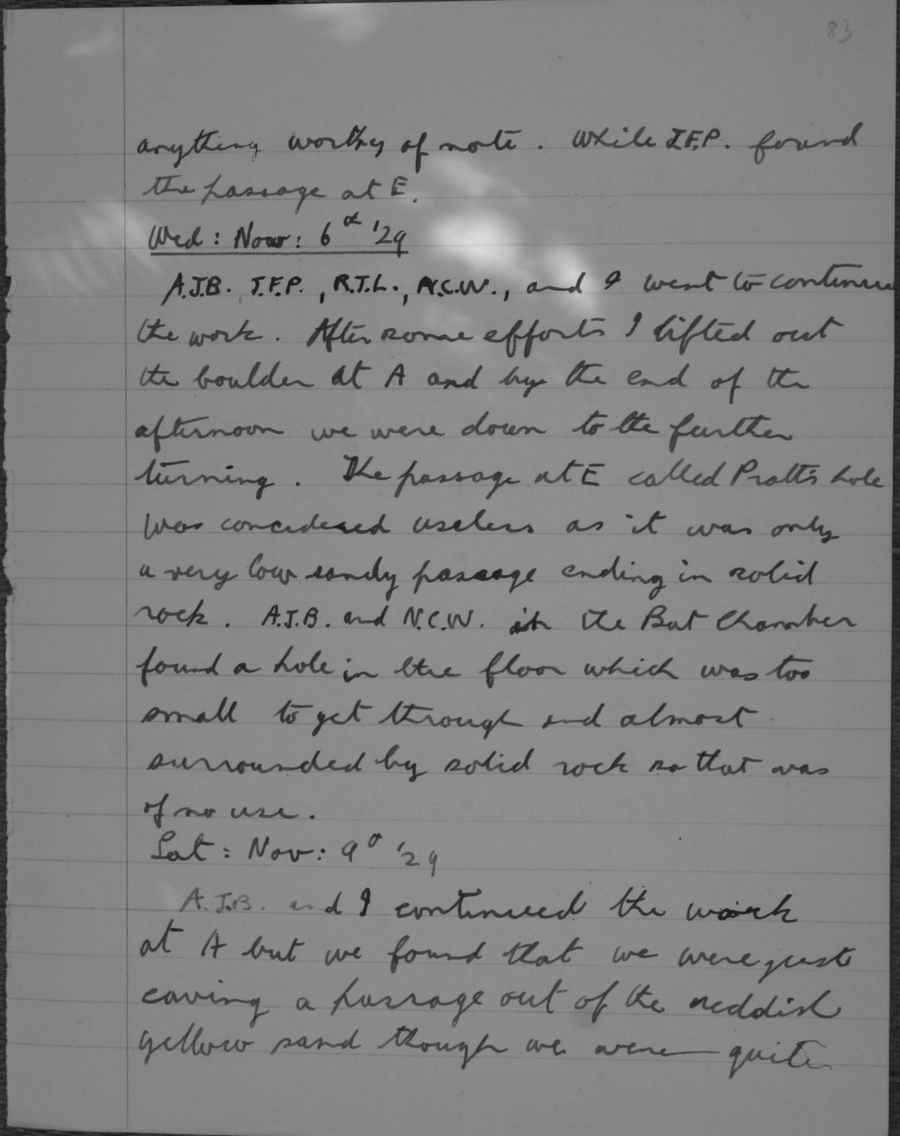 83
anything worthy of note. While J.F.P. found
the passage at E.
Wed: Nov: 6th '29
A.J.B. J.F.P., R.T.L., N.C.W., and I went to continue
the work. After some efforts I lifted out
the boulder at A and by the end of the
afternoon we were down to the further
turning. The passage at E called Pratt's hole
was concidered useless as it was only
a very low sandy passage ending in solid
rock. A.J.B. and N.C.W. in the Bat Chamber
found a hole in the floor which was too
small to get through and almost
surrounded by solid rock so that was
of no use.
Sat: Nov: 9th '29
A.J.B. and I continued the work
at A but we found that we were just
caving a passage out of the reddish
yellow sand though we were quite